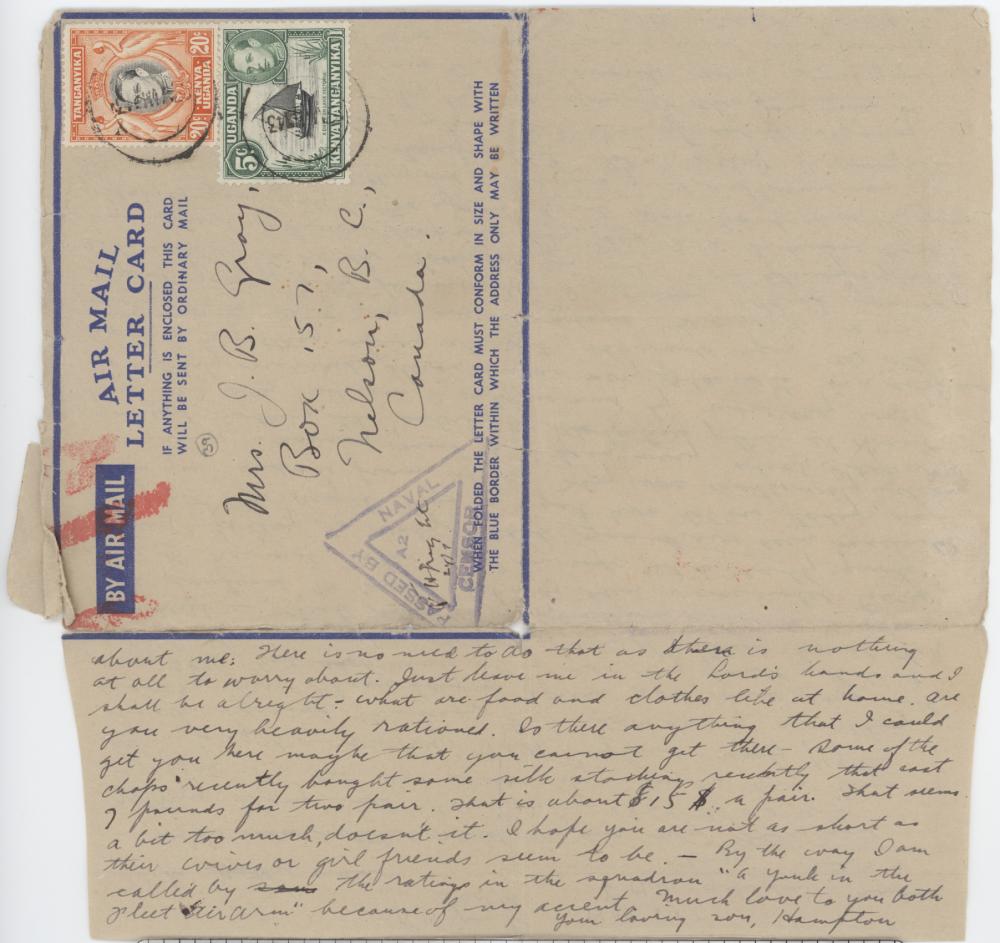 TANGANYIKA
KENYA-
UGANDA
20c
20c
UGANDA
KENYA TANGANYIKA
5c
BY AIR MAIL
AIR MAIL
LETTER CARD
IF ANYTHING IS ENCLOSED THIS CARD
WILL BE SENT BY ORDINARY MAIL
Mrs. J. B. Gray,
Box 157,
Nelson, B. C.,
Canada.
PASSED BY
NAVAL
CENSOR
A2
WHEN FOLDED THE LETTER CARD MUST CONFORM IN SIZE AND SHAPE WITH
THE BLUE BORDER WITHIN WHICH THE ADDRESS ONLY MAY BE WRITTEN
about me: Here is no need to do that as there is nothing
at all to worry about. Just leave me in the Lord's hands and I
shall be alright - what are food and clothes like at home. are
you very heavily rationed. Is there anything that I could
get you here maybe that you cannot get there - Some of the
chaps recently bought some silk stocking recently that cost
7 pounds for two pair. That is about $15 $ a pair. That seems
a bit too much, doesn't it. I hope you are not as short as
their wives or girl friends seem to be. - By the way I am
called by the ratings in the squadron "a yank in the
Fleet Air Arm" because of my accent. Much love to you both
Your loving son, Hampton